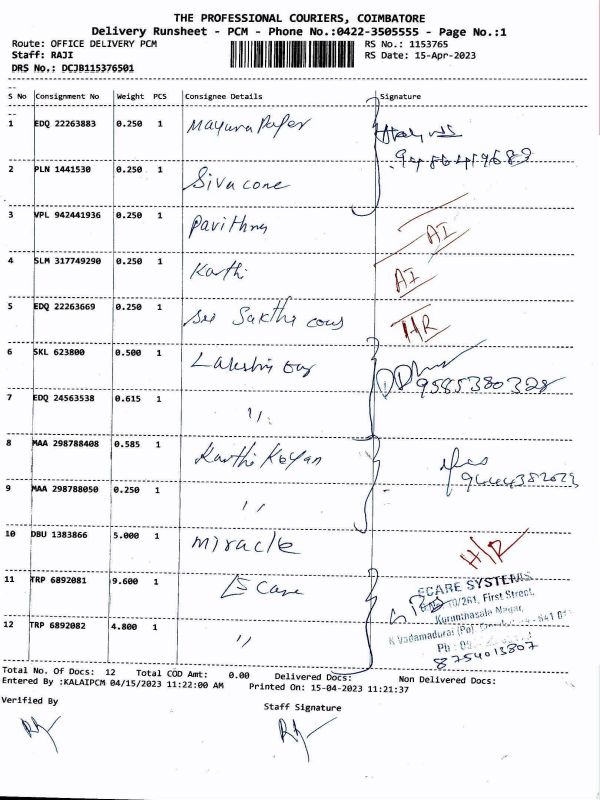 THE PROFESSIONAL COURIERS, COIMBATORE
Delivery Runsheet - PCM - Phone No.:0422-3505555 - Page No.:1
Route: OFFICE DELIVERY PCM RS No.: 1153765
Staff: RAJI RS Date: 15-Apr-2023
DRS No.: DCJB115376501
S No Consignment No Weight PCS Consignee Details Signature
1 EDQ 22263883 0.250 1 Mayura Paper
2 PLN 1441530 0.250 1 Siva cone
3 VPL 942441936 0.250 1 Pavithra AI
4 SLM 317749290 0.250 1 Karthi AI
5 EDQ 22263669 0.250 1 Sakthi HR
6 SKL 623800 0.500 1 9585380328
7 EDQ 24563538 0.615 1 ,,
8 MAA 298788408 0.585 1 Karthikeyan
9 MAA 298788050 0.250 1 ,,
10 DBU 1383866 5.000 1 miracle H/R
11 TRP 6892081 9.600 1 Care ECARE SYSTEMS
10/261, First Street,
Kuranthasala Nagar,
12 TRP 6892082 4.800 1 ,, K Vadamadurai (Po)
8754013807
Total No. Of Docs: 12 Total COD Amt: 0.00 Delivered Docs: Non Delivered Docs:
Entered By :KALAIPCM 04/15/2023 11:22:00 AM Printed On: 15-04-2023 11:21:37
Verified By Staff Signature